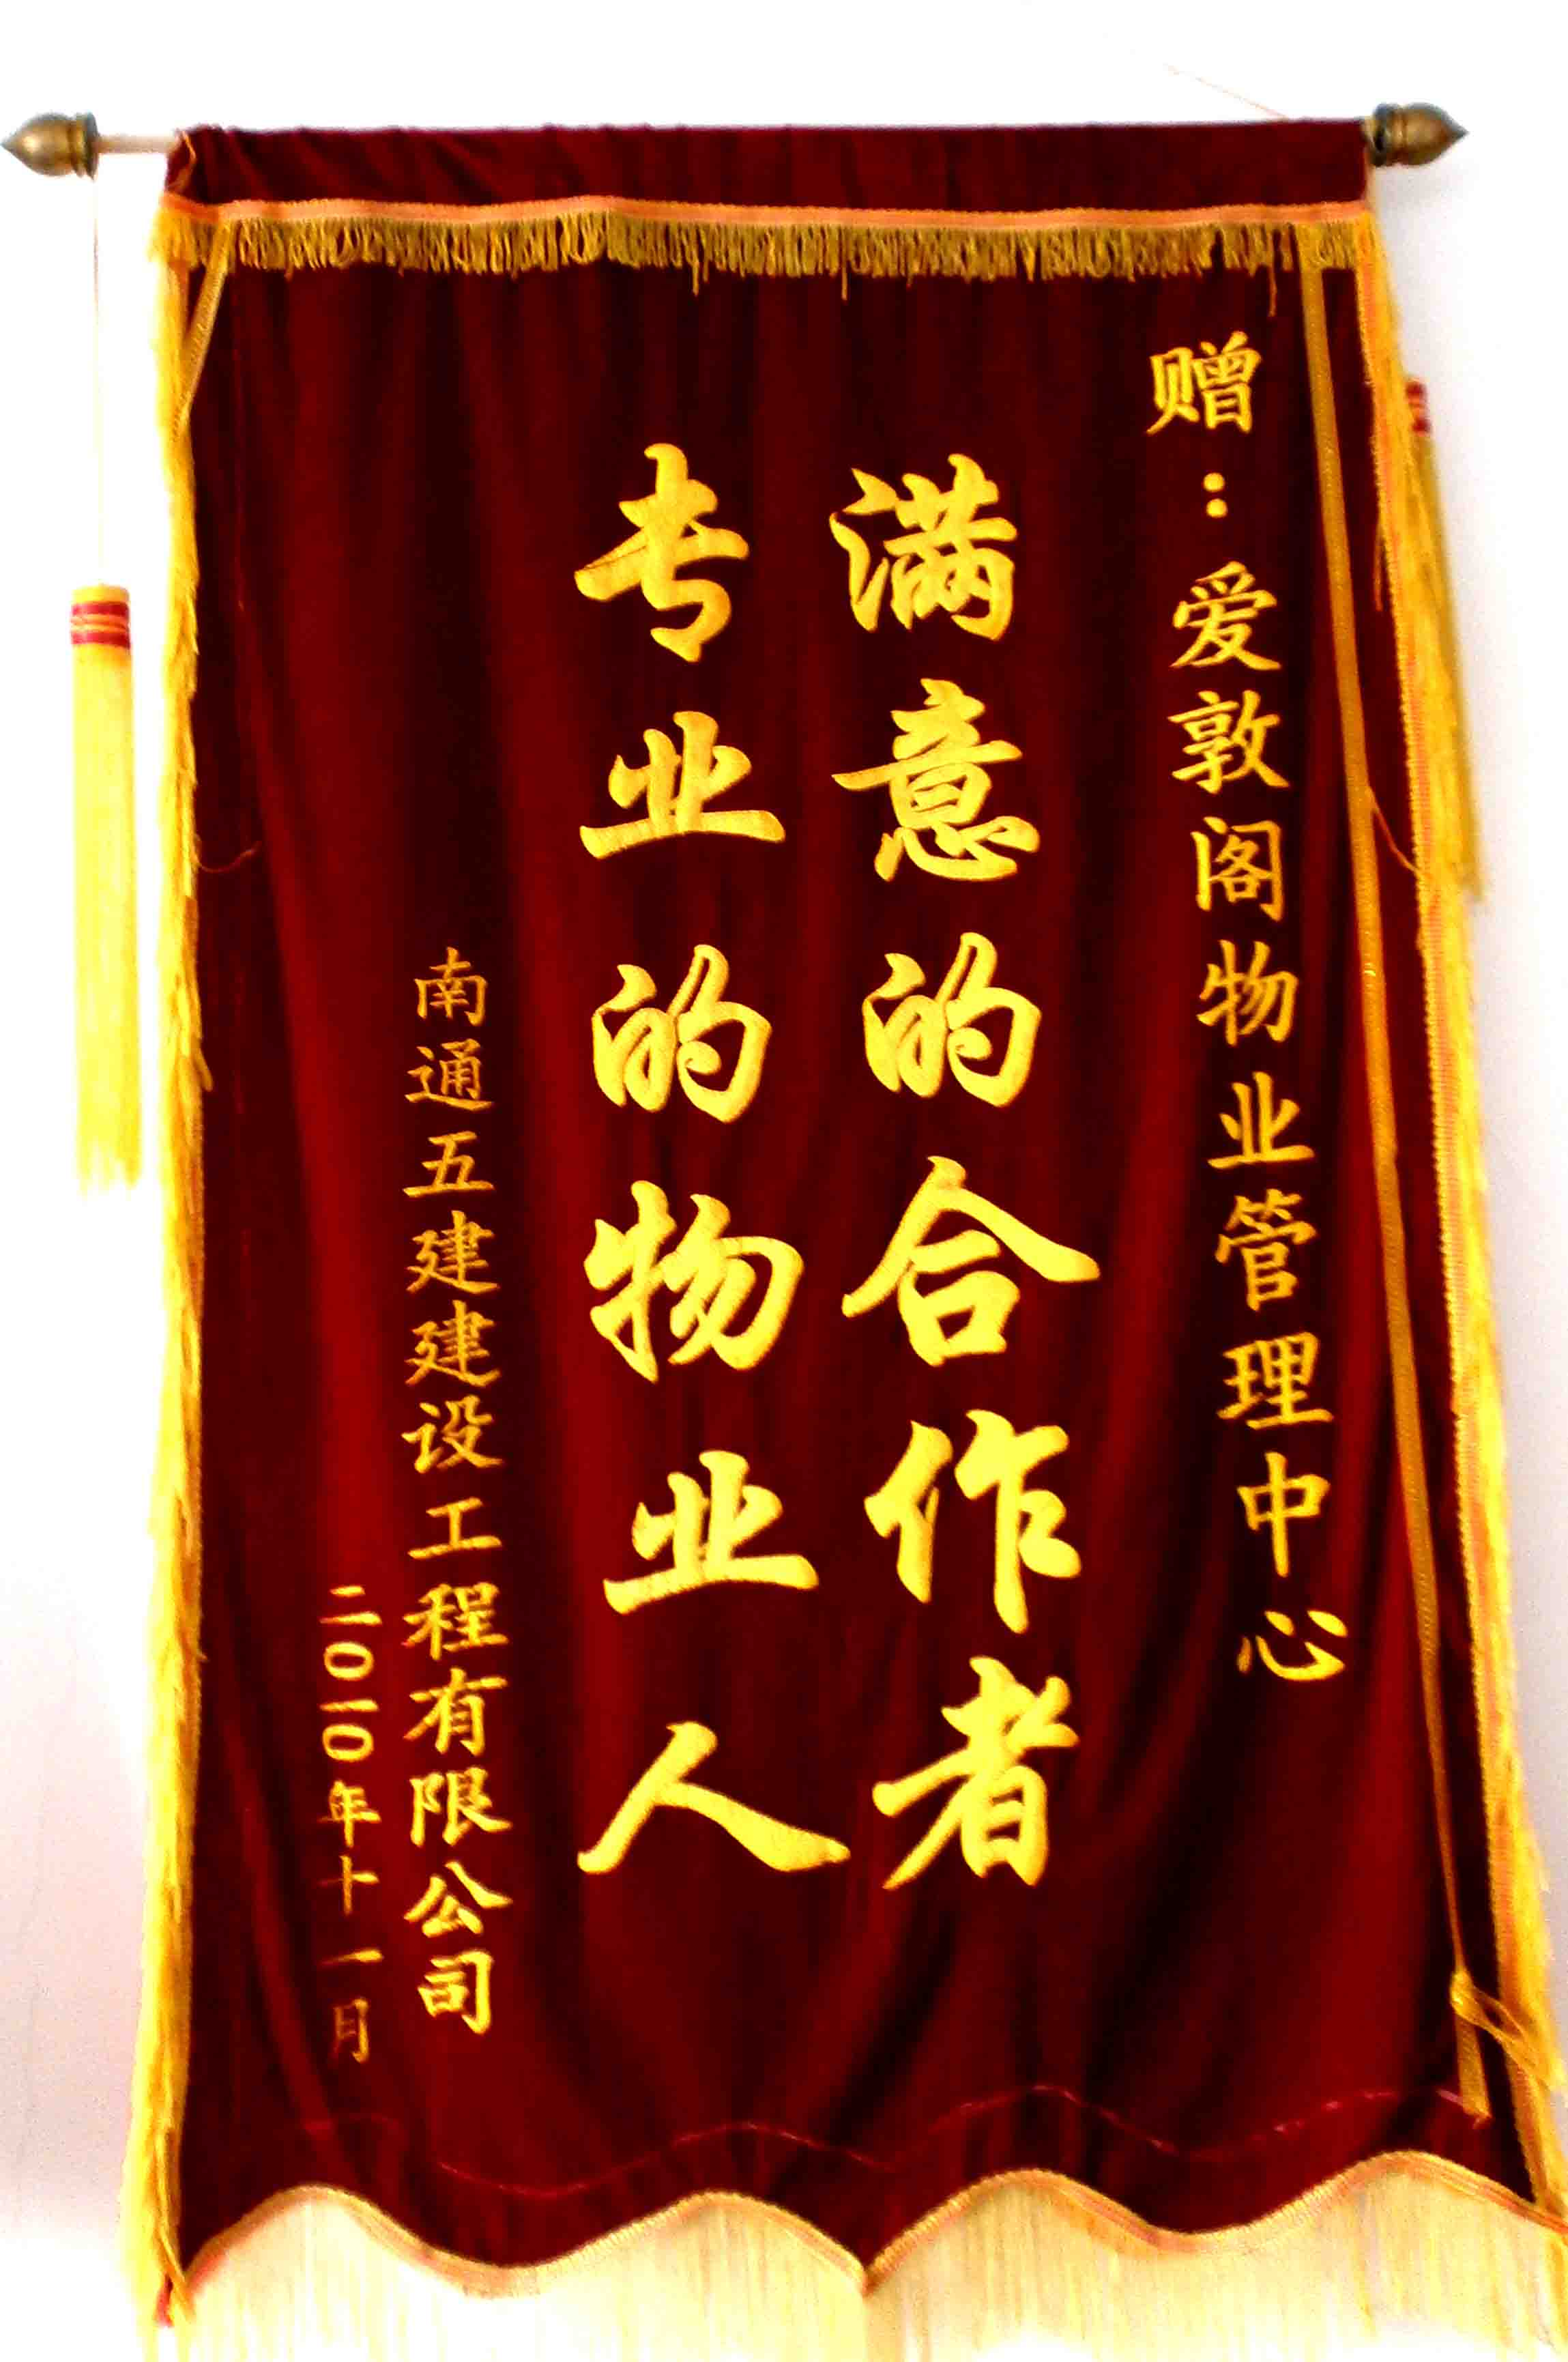 赠：爱敦阁物业管理中心
满意的合作者
专业的物业人
南通五建建设工程有限公司
二0一0年十一月